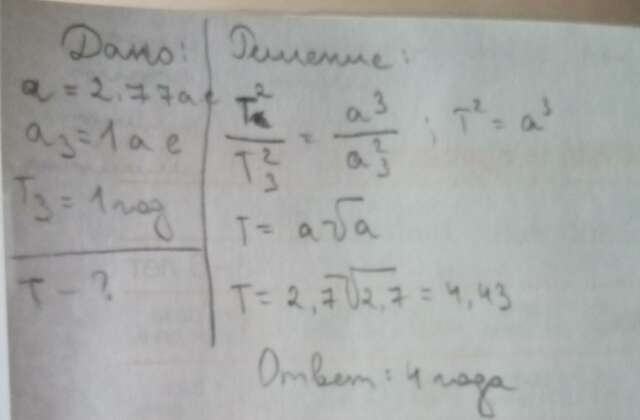 Дано:
a = 2.77 а е
a₃ = 1 а е
T₃ = 1 год
T - ?
Решение:
T²/T₃² = a³/a₃² ; T² = a³
T = a√a
T = 2,7√2,7 = 4,43
Ответ: 4 года